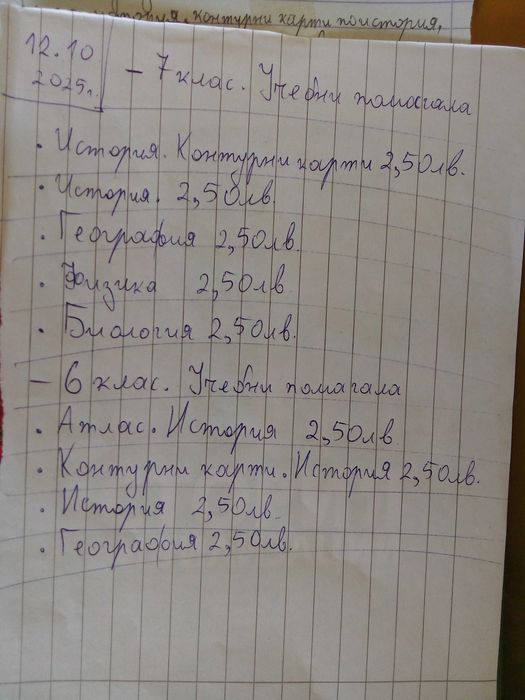 контурни карти по история,
12.10
2025г.
– 7 клас. Учебни помагала
· История. Контурни карти 2,50лв.
· История. 2,50лв.
· География 2,50лв.
· Физика 2,50лв.
· Биология 2,50лв.
– 6 клас. Учебни помагала
· Атлас. История 2,50лв.
· Контурни карти. История 2,50лв.
· История 2,50лв.
· География 2,50лв.